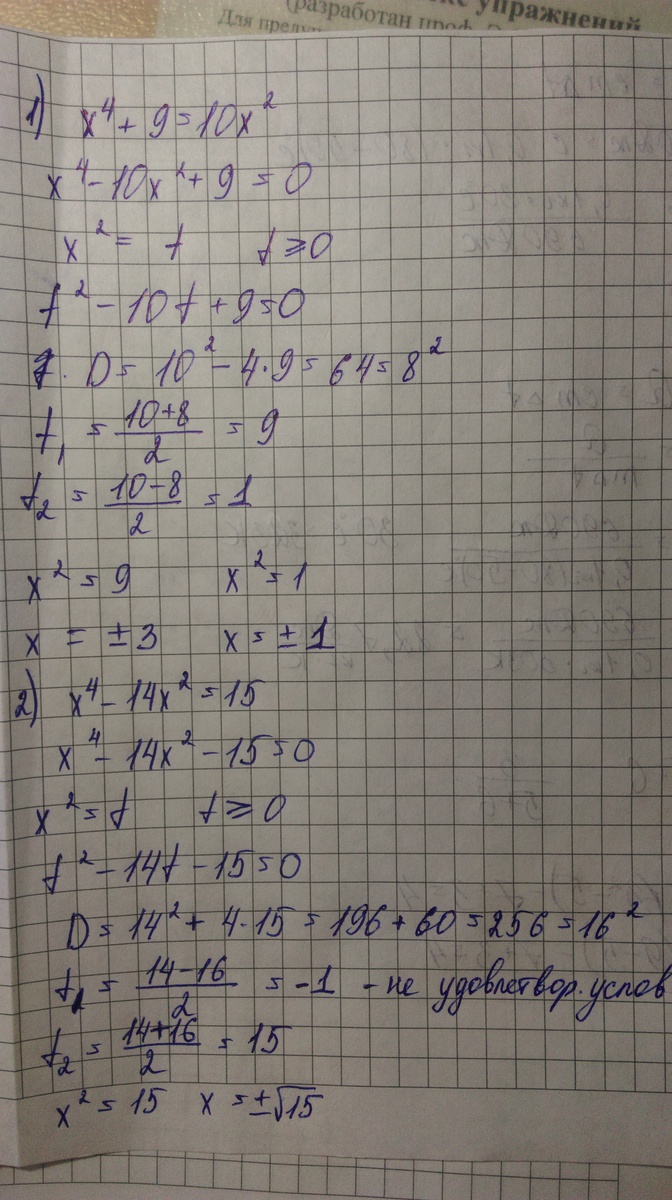 (разработан проф.
упражнений
Для
1) x⁴ + 9 = 10x²
x⁴ - 10x² + 9 = 0
x² = t t ⩾ 0
t² - 10t + 9 = 0
D = 10² - 4·9 = 64 = 8²
t₁ = (10+8)/2 = 9
t₂ = (10-8)/2 = 1
x² = 9 x² = 1
x = ±3 x = ±1
2) x⁴ - 14x² = 15
x⁴ - 14x² - 15 = 0
x² = t t ⩾ 0
t² - 14t - 15 = 0
D = 14² + 4·15 = 196 + 60 = 256 = 16²
t₁ = (14-16)/2 = -1 - не удовлетвор. услов
t₂ = (14+16)/2 = 15
x² = 15 x = ±√15